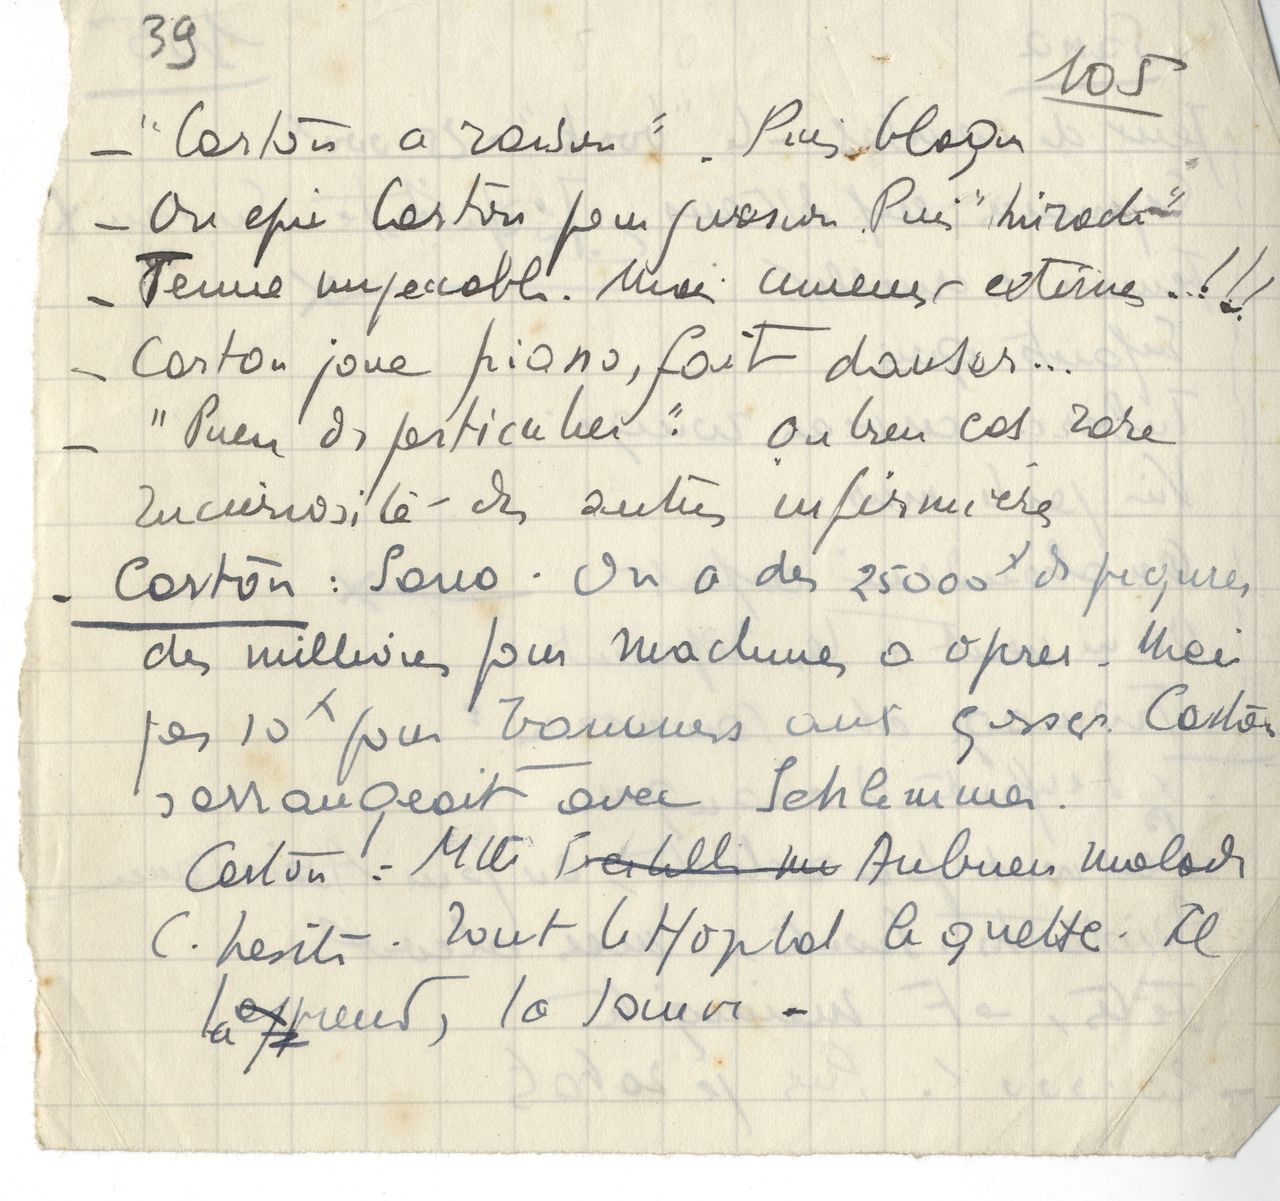 39
105
– "Carton a raison". Puis blagu
– On epie Carton pour guerison. Puis "miracle"
– Tenue impeccable. Mais externes...!!!
– Carton joue piano, fait danser...
– "Rien de particulier". Ou bien cas rare
Incuriosité des autres infirmières
– Carton : Sana. On a des 25000 de piqures
des millions pour machines a oprer. Mais
pas 10 pour aux gosses. Carton
s'arrangeait avec Schlemmer.
Carton : Mlle malade
C. hesite. Tout le Hopital le guette. Il
la prend, la sauve –